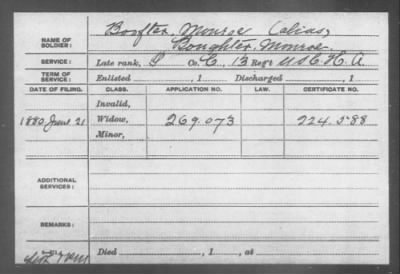 NAME OF SOLDIER: Boofter, Monroe (alias)
Boughter, Monroe
SERVICE: Late rank, P Co. C, 13 Reg't U.S.C.H.A.
TERM OF SERVICE: Enlisted , 1 Discharged , 1
DATE OF FILING. CLASS. APPLICATION NO. LAW. CERTIFICATE NO.
Invalid,
1880 June 21 Widow, 269.073 224.588
Minor,
ADDITIONAL SERVICES:
REMARKS:
Died , 1 , at